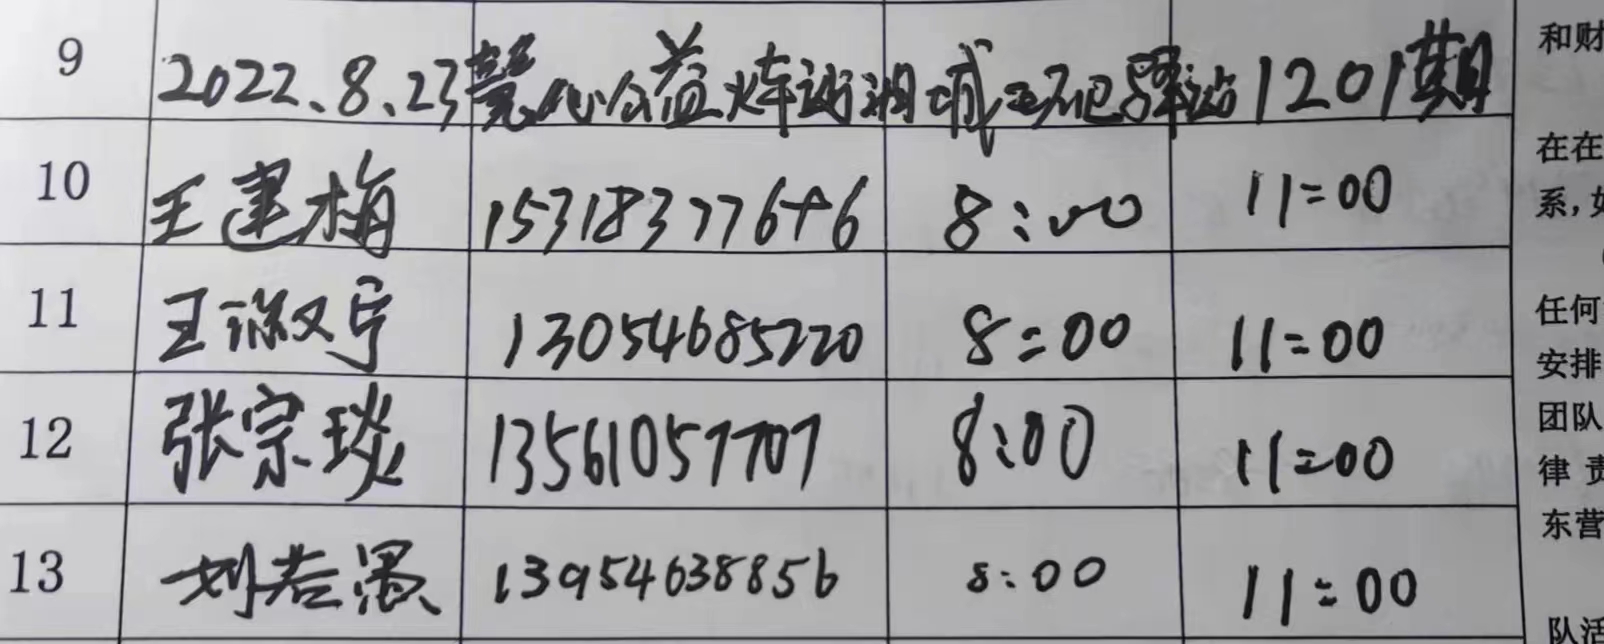 9 2022.8.23慧心公益炜谢湖城玉石巴驿站1201期
10 王建梅 153183776+6 8:00 11=00
11 王淑宁 13054685220 8=00 11=00
12 张宗琰 13561057707 8:00 11=00
13 刘若愚 13954638856 8:00 11=00
和财
在在
系,如
任何
安排
团队
律 责
东营
队活